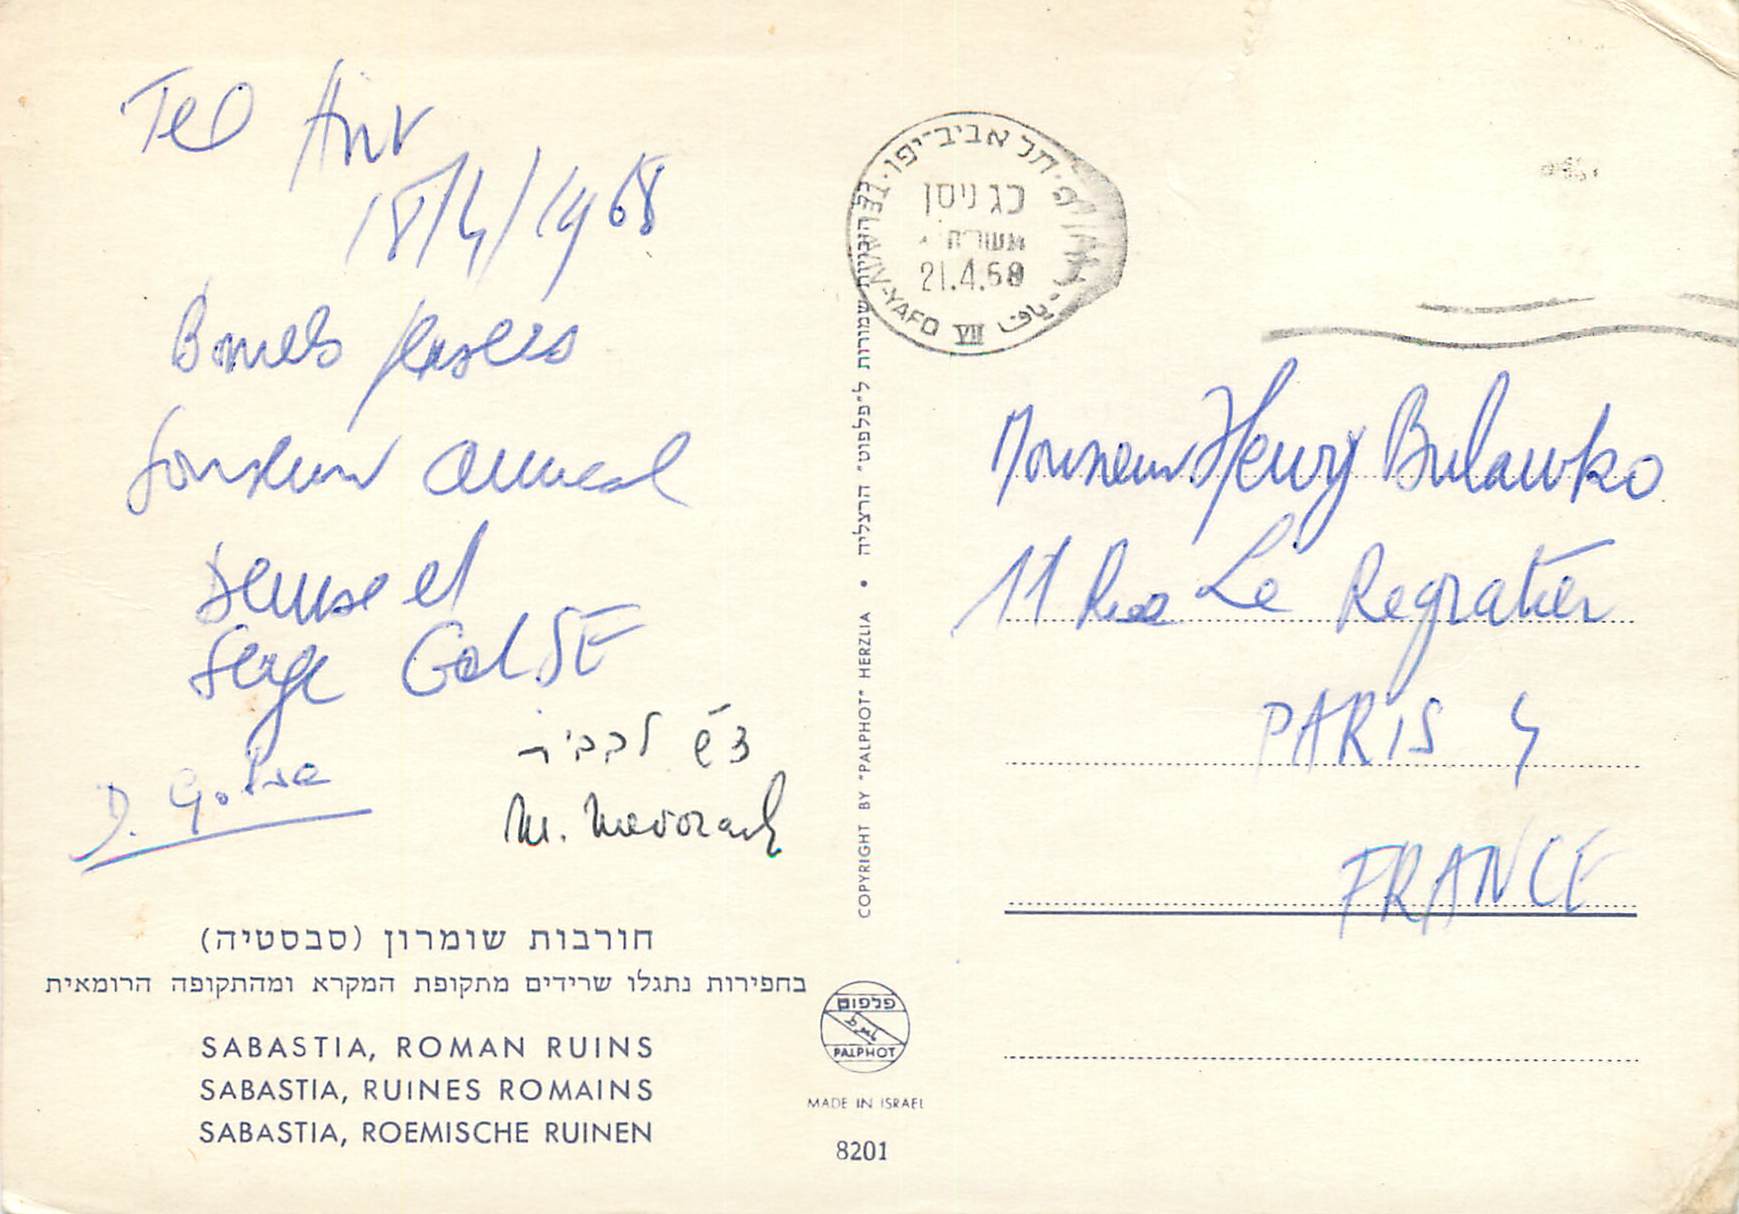 Tel Aviv
18/4/1968
Bonnes pensees
Souvenir amical
Denise et
Serge GolSE
D. Golse
ד"ש לבבית
M. Mevorach
חורבות שומרון (סבסטיה)
בחפירות נתגלו שרידים מתקופת המקרא ומהתקופה הרומאית
SABASTIA, ROMAN RUINS
SABASTIA, RUINES ROMAINS
SABASTIA, ROEMISCHE RUINEN
כל הזכויות שמורות ל"פלפוט" הרצליה • COPYRIGHT BY "PALPHOT" HERZLIA
פלפוט
PALPHOT
MADE IN ISRAEL
8201
תל אביב-יפו
כג ניסן
תשכ"ח
21.4.68
TEL AVIV-YAFO VII
Monsieur Henry Bulawko
11 Rue Le Regratier
PARIS 4
FRANCE